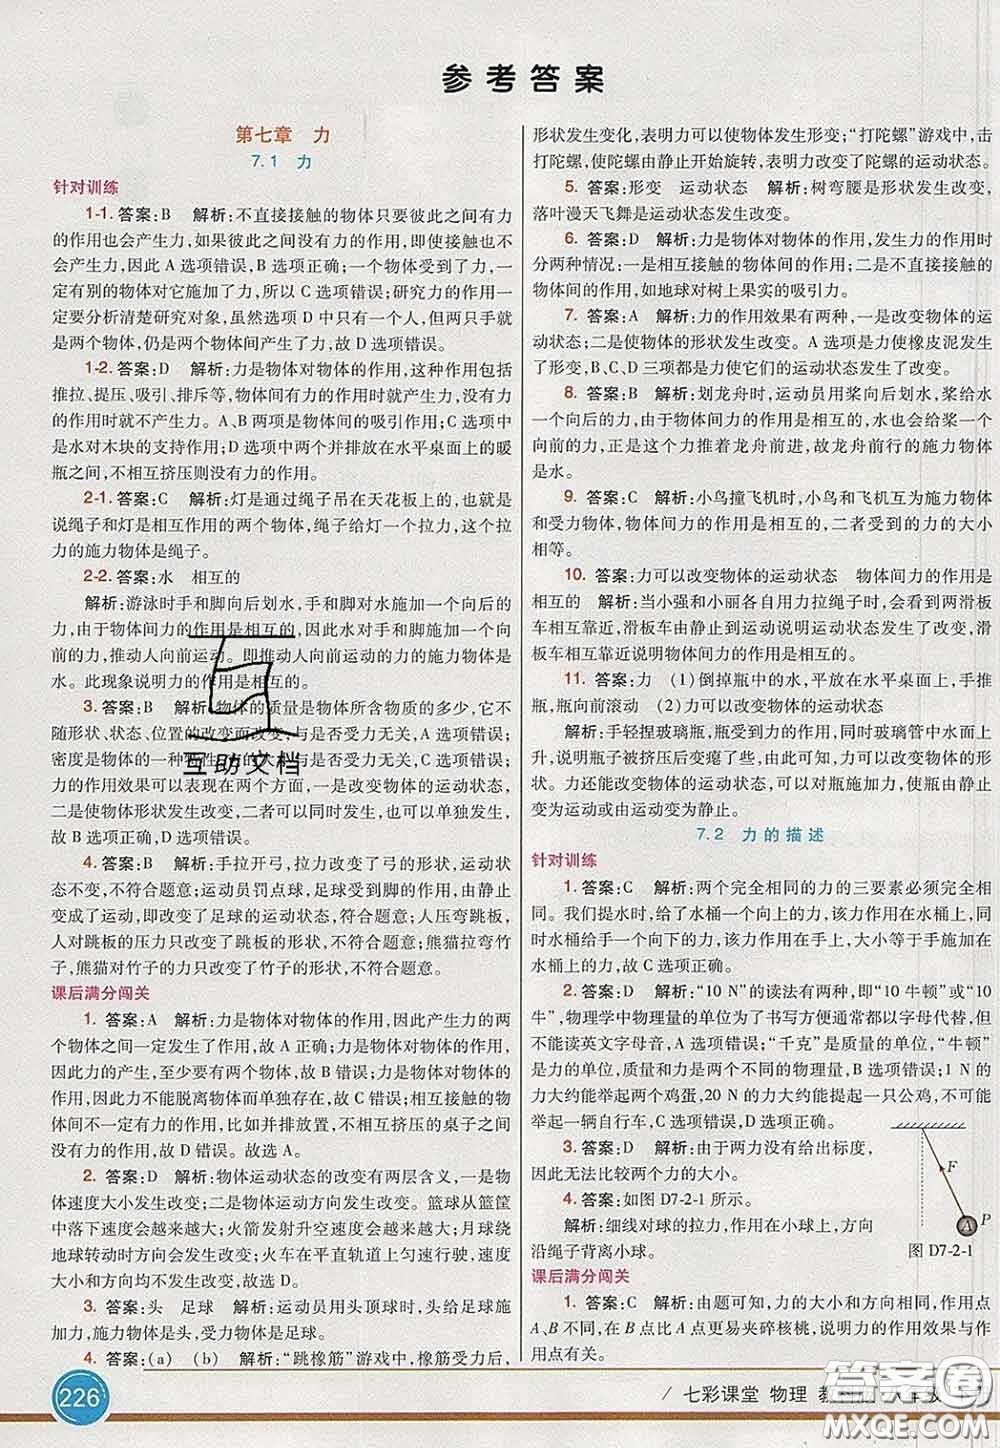 参考答案
第七章 力
7.1 力
针对训练
1-1. 答案:B 解析:不直接接触的物体只要彼此之间有力
的作用也会产生力,如果彼此之间没有力的作用,即使接触也不
会产生力,因此 A 选项错误,B 选项正确;一个物体受到了力,一
定有别的物体对它施加了力,所以 C 选项错误;研究力的作用一
定要分析清楚研究对象,虽然选项 D 中只有一个人,但两只手就
是两个物体,仍是两个物体间产生了力,故 D 选项错误。
1-2. 答案:D 解析:力是物体对物体的作用,这种作用包括
推拉、提压、吸引、排斥等,物体间有力的作用时就产生力,没有力
的作用时就不产生力。A、B 两项是物体间的吸引作用;C 选项中
是水对木块的支持作用;D 选项中两个并排放在水平桌面上的暖
瓶之间,不相互挤压则没有力的作用。
2-1. 答案:C 解析:灯是通过绳子吊在天花板上的,也就是
说绳子和灯是相互作用的两个物体,绳子给灯一个拉力,这个拉
力的施力物体是绳子。
2-2. 答案:水 相互的
解析:游泳时手和脚向后划水,手和脚对水施加一个向后的
力,由于物体间力的作用是相互的,因此水对手和脚施加一个向
前的力,推动人向前运动。即推动人向前运动的力的施力物体是
水。此现象说明力的作用是相互的。
3. 答案:B 解析:物体的质量是物体所含物质的多少,它不
随形状、状态、位置的改变而改变,与是否受力无关,A 选项错误;
密度是物体的一种特性,它的大小与是否受力无关,C 选项错误;
力的作用效果可以表现在两个方面,一是使物体运动状态改变,
二是使物体形状发生改变,二者可以同时发生,也可以单独发生,
故 B 选项正确,D 选项错误。
4. 答案:B 解析:手拉开弓,拉力改变了弓的形状,运动状
态不变,不符合题意;运动员罚点球,球受到脚的作用,由静止
变成了运动,即改变了足球的运动状态,符合题意;人压弯跳板,
人对跳板的压力只改变了跳板的形状,不符合题意;熊猫拉弯竹
子,熊猫对竹子的力只改变了竹子的形状,不符合题意。
课后满分闯关
1. 答案:A 解析:力是物体对物体的作用,因此产生力的两
个物体之间一定发生了作用,故 A 正确;力是物体对物体的作用,
因此力的产生,至少要有两个物体,故 B 错误;力是物体对物体的
作用,因此力不能脱离物体而单独存在,故 C 错误;相互接触的物
体间不一定有力的作用,比如并排放置,不相互挤压的桌子之间
没有力的作用,故 D 错误。故选 A。
2. 答案:D 解析:物体运动状态的改变有两层含义,一是物
体速度大小发生改变;二是物体运动方向发生改变。篮球从篮筐
中落下速度会越来越大;火箭发射升空速度会越来越大;月球绕
地球转动时方向会发生改变;火车在平直轨道上匀速行驶,速度
大小和方向均不发生改变,故选 D。
3. 答案:头 足球 解析:运动员用头顶球时,头给足球施
加力,施力物体是头,受力物体是足球。
4. 答案:(a) (b) 解析:“跳橡筋”游戏中,橡筋受力后,
形状发生变化,表明力可以使物体发生形变;“打陀螺”游戏中,击
打陀螺,使陀螺由静止开始旋转,表明力改变了陀螺的运动状态。
5. 答案:形变 运动状态 解析:树弯腰是形状发生改变,
落叶漫天飞舞是运动状态发生改变。
6. 答案:D 解析:力是物体对物体的作用,发生力的作用时
分两种情况:一是相互接触的物体间的作用;二是不接触的物体
间的作用,如地球对树上果实的吸引力。
7. 答案:A 解析:力的作用效果有两种,一是改变物体的运
动状态;二是使物体的形状发生改变。A 选项是力使橡皮泥发生
了形变,B、C、D 三项都是力使它们的运动状态发生了改变。
8. 答案:B 解析:划龙舟时,运动员用桨向后划水,桨给水
一个向后的力,由于物体间力的作用是相互的,水也会给桨一个
向前的力,正是这个力推着龙舟前进,故龙舟前行的施力物体
是水。
9. 答案:C 解析:小鸟撞飞机时,小鸟和飞机互为施力物体
和受力物体,物体间力的作用是相互的,二者受到的力的大小
相等。
10. 答案:力可以改变物体的运动状态 物体间力的作用是
相互的 解析:当小强和小丽各自用力拉绳子时,会看到两滑板
车相互靠近,滑板车由静止到运动说明运动状态发生了改变;两
滑板车相互靠近说明物体间力的作用是相互的。
11. 答案:力 (1)倒掉瓶中的水,平放在水平桌面上,手推
瓶,瓶向前滚动 (2)力可以改变物体的运动状态
解析:手轻捏玻璃瓶,施加了力的作用,同时玻璃管中水面上
升,说明瓶子被挤压后变瘪了一些,由此可知,力使瓶子的形状改
变。力还能改变物体的运动状态,如对瓶施加力,使瓶由静止
变为运动或由运动变为静止。
7.2 力的描述
针对训练
1. 答案:C 解析:两个完全相同的力的三要素必须完全相
同。我们提水时,给了水桶一个向上的力,该力作用在水桶上,同
时水桶给手一个向下的力,该力作用在手上,大小等于手施加在
水桶上的力,故 C 选项正确。
2. 答案:D 解析:“10 N”的读法有两种,即“10 牛顿”或“10
牛”,物理学中物理量的单位为了书写方便通常都以字母代替,但
不能读英文字母音,A 选项错误;“千克”是质量的单位,“牛顿”
是力的单位,质量与力是两个不同的物理量,B 选项错误;1 N 的
力大约能举起两个鸡蛋,20 N 的力大约能提起一只公鸡,不可能
举起一辆自行车,C 选项错误,D 选项正确。
3. 答案:D 解析:由于两力没有给出标度,
因此无法比较两个力的大小。
4. 答案:如图 D7-2-1 所示。
解析:细线对球的拉力,作用在小球上,方向
沿绳子背离小球。
F
A
P
图 D7-2-1
课后满分闯关
1. 答案:C 解析:由题可知,力的大小和方向相同,作用点
A、B 不同,在 B 点比 A 点更易夹碎核桃,说明力的作用效果与作
用点有关。
互助文档
226
七彩课堂 物理
答案圈
MXQE.COM